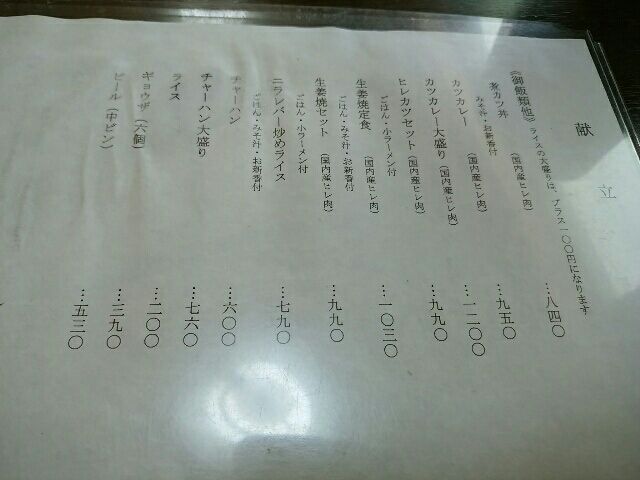 献立
《御飯類他》ライスの大盛りは、プラス一〇〇円になります
煮カツ丼 (国内産ヒレ肉) …八四〇
みそ汁・お新香付
カツカレー (国内産ヒレ肉) …九五〇
カツカレー大盛り (国内産ヒレ肉) …一二〇〇
ヒレカツセット (国内産ヒレ肉) …九九〇
ごはん・小ラーメン付
生姜焼定食 (国内産ヒレ肉) …一〇三〇
ごはん・みそ汁・お新香付
生姜焼セット (国内産ヒレ肉) …九九〇
ごはん・小ラーメン付
ニラレバー炒めライス …七九〇
ごはん・みそ汁・お新香付
チャーハン …六〇〇
チャーハン大盛り …七六〇
ライス …二〇〇
ギョウザ (六個) …三九〇
ビール (中ビン) …五三〇